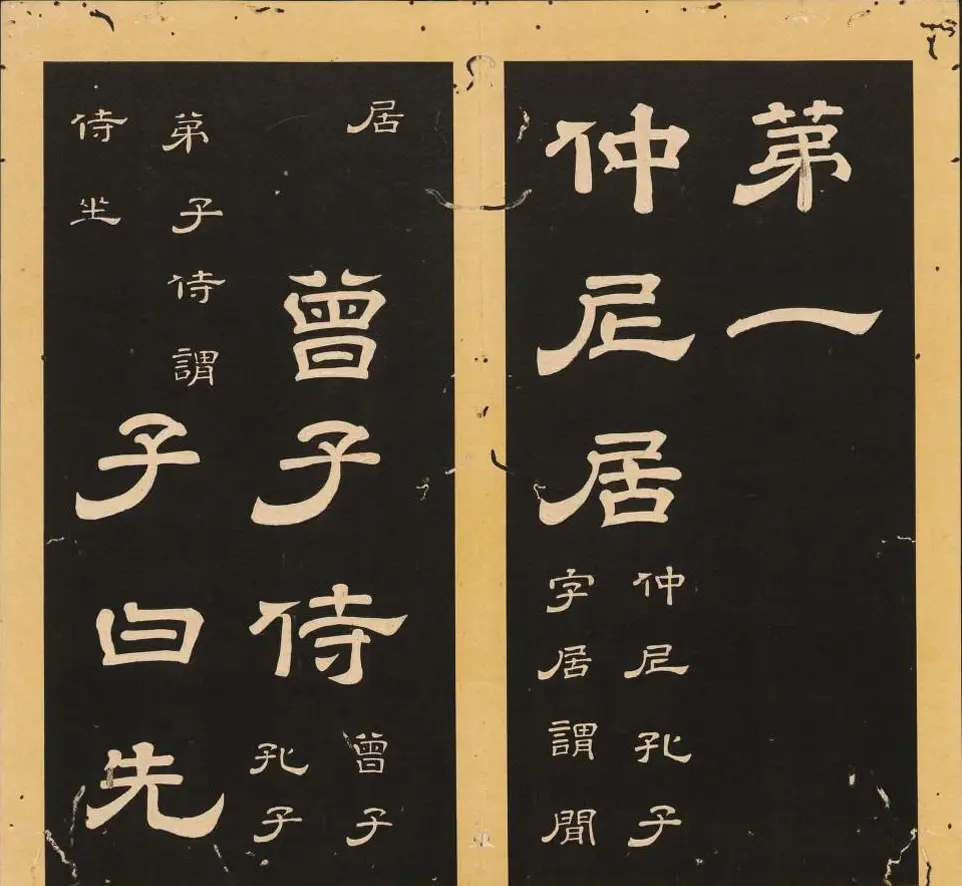 苐一
仲尼居
仲尼孔子
字居謂閒
居
曾子侍
曾子
孔子
弟子侍謂
侍坐
子曰先